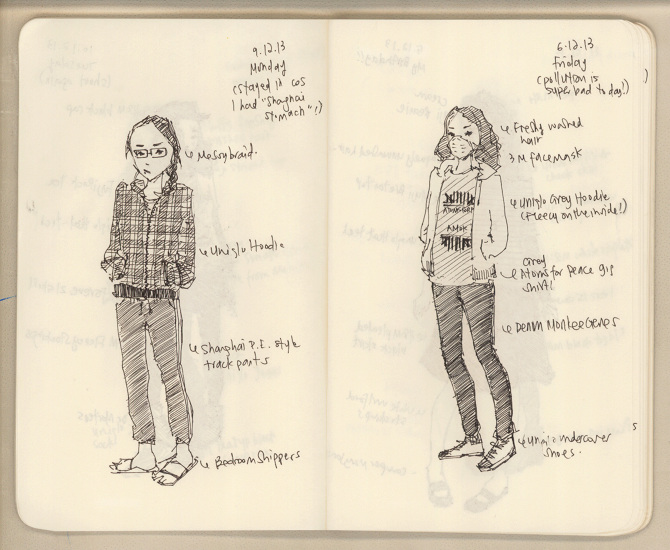 9.12.13
Monday
(stayed in cos
I had "Shanghai
stomach":()
Messy braid.
Uniqlo Hoodie
Shanghai P.E. style
track pants
Bedroom Slippers
6.12.13
Friday
(pollution is
super bad today!)
Freshly washed
hair
3M facemask
Uniqlo Grey Hoodie
(fleecy on the inside!)
AMOK
Grey
Atoms for Peace gig
shirt!
Denim MonkeeGenes
Uniqlo undercover
shoes.